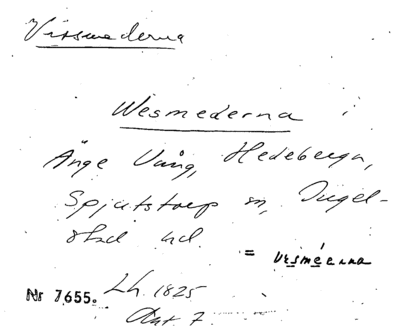 Vissmederna
Wesmederna
Änge Vång, Hedeberga,
Spjutstorp sn, Ingel-
stad hd.
= vesmeerna
Nr 7655. Lh. 1825
Akt. 7